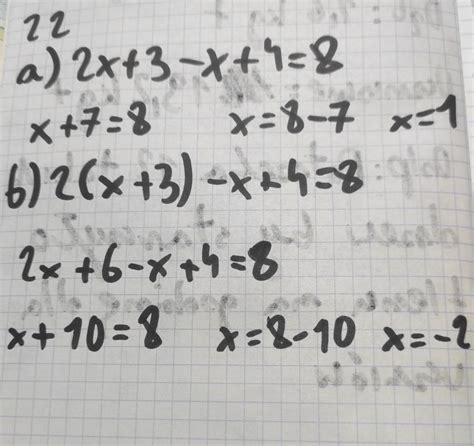 22
a) 2x+3-x+4=8
x+7=8 x=8-7 x=1
b) 2(x+3)-x+4=8
2x+6-x+4=8
x+10=8 x=8-10 x=-2